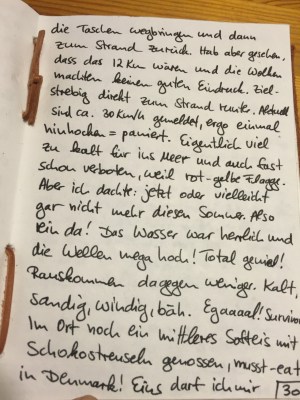 die Taschen wegbringen und dann
zum Strand zurück. Hab aber gesehen,
dass das 12 Km wären und die Wolken
machten keinen guten Eindruck. Ziel-
strebig direkt zum Strand runter. Aktuell
sind ca. 30 Km/h gemeldet, ergo einmal
hinhocken = paniert. Eigentlich viel
zu kalt für ins Meer und auch fast
schon verboten, weil rot-gelbe Flagge.
Aber ich dachte: jetzt oder vielleicht
gar nicht mehr diesen Sommer. Also
rein da! Das Wasser war herrlich und
die Wellen mega hoch! Total genial!
Rauskommen dagegen weniger. Kalt,
sandig, windig, bäh. Egaaaal! Survivor
Im Ort noch ein mittleres Softeis mit
Schokostreuseln genossen, must-eat
in Denmark! Eins darf ich mir
30